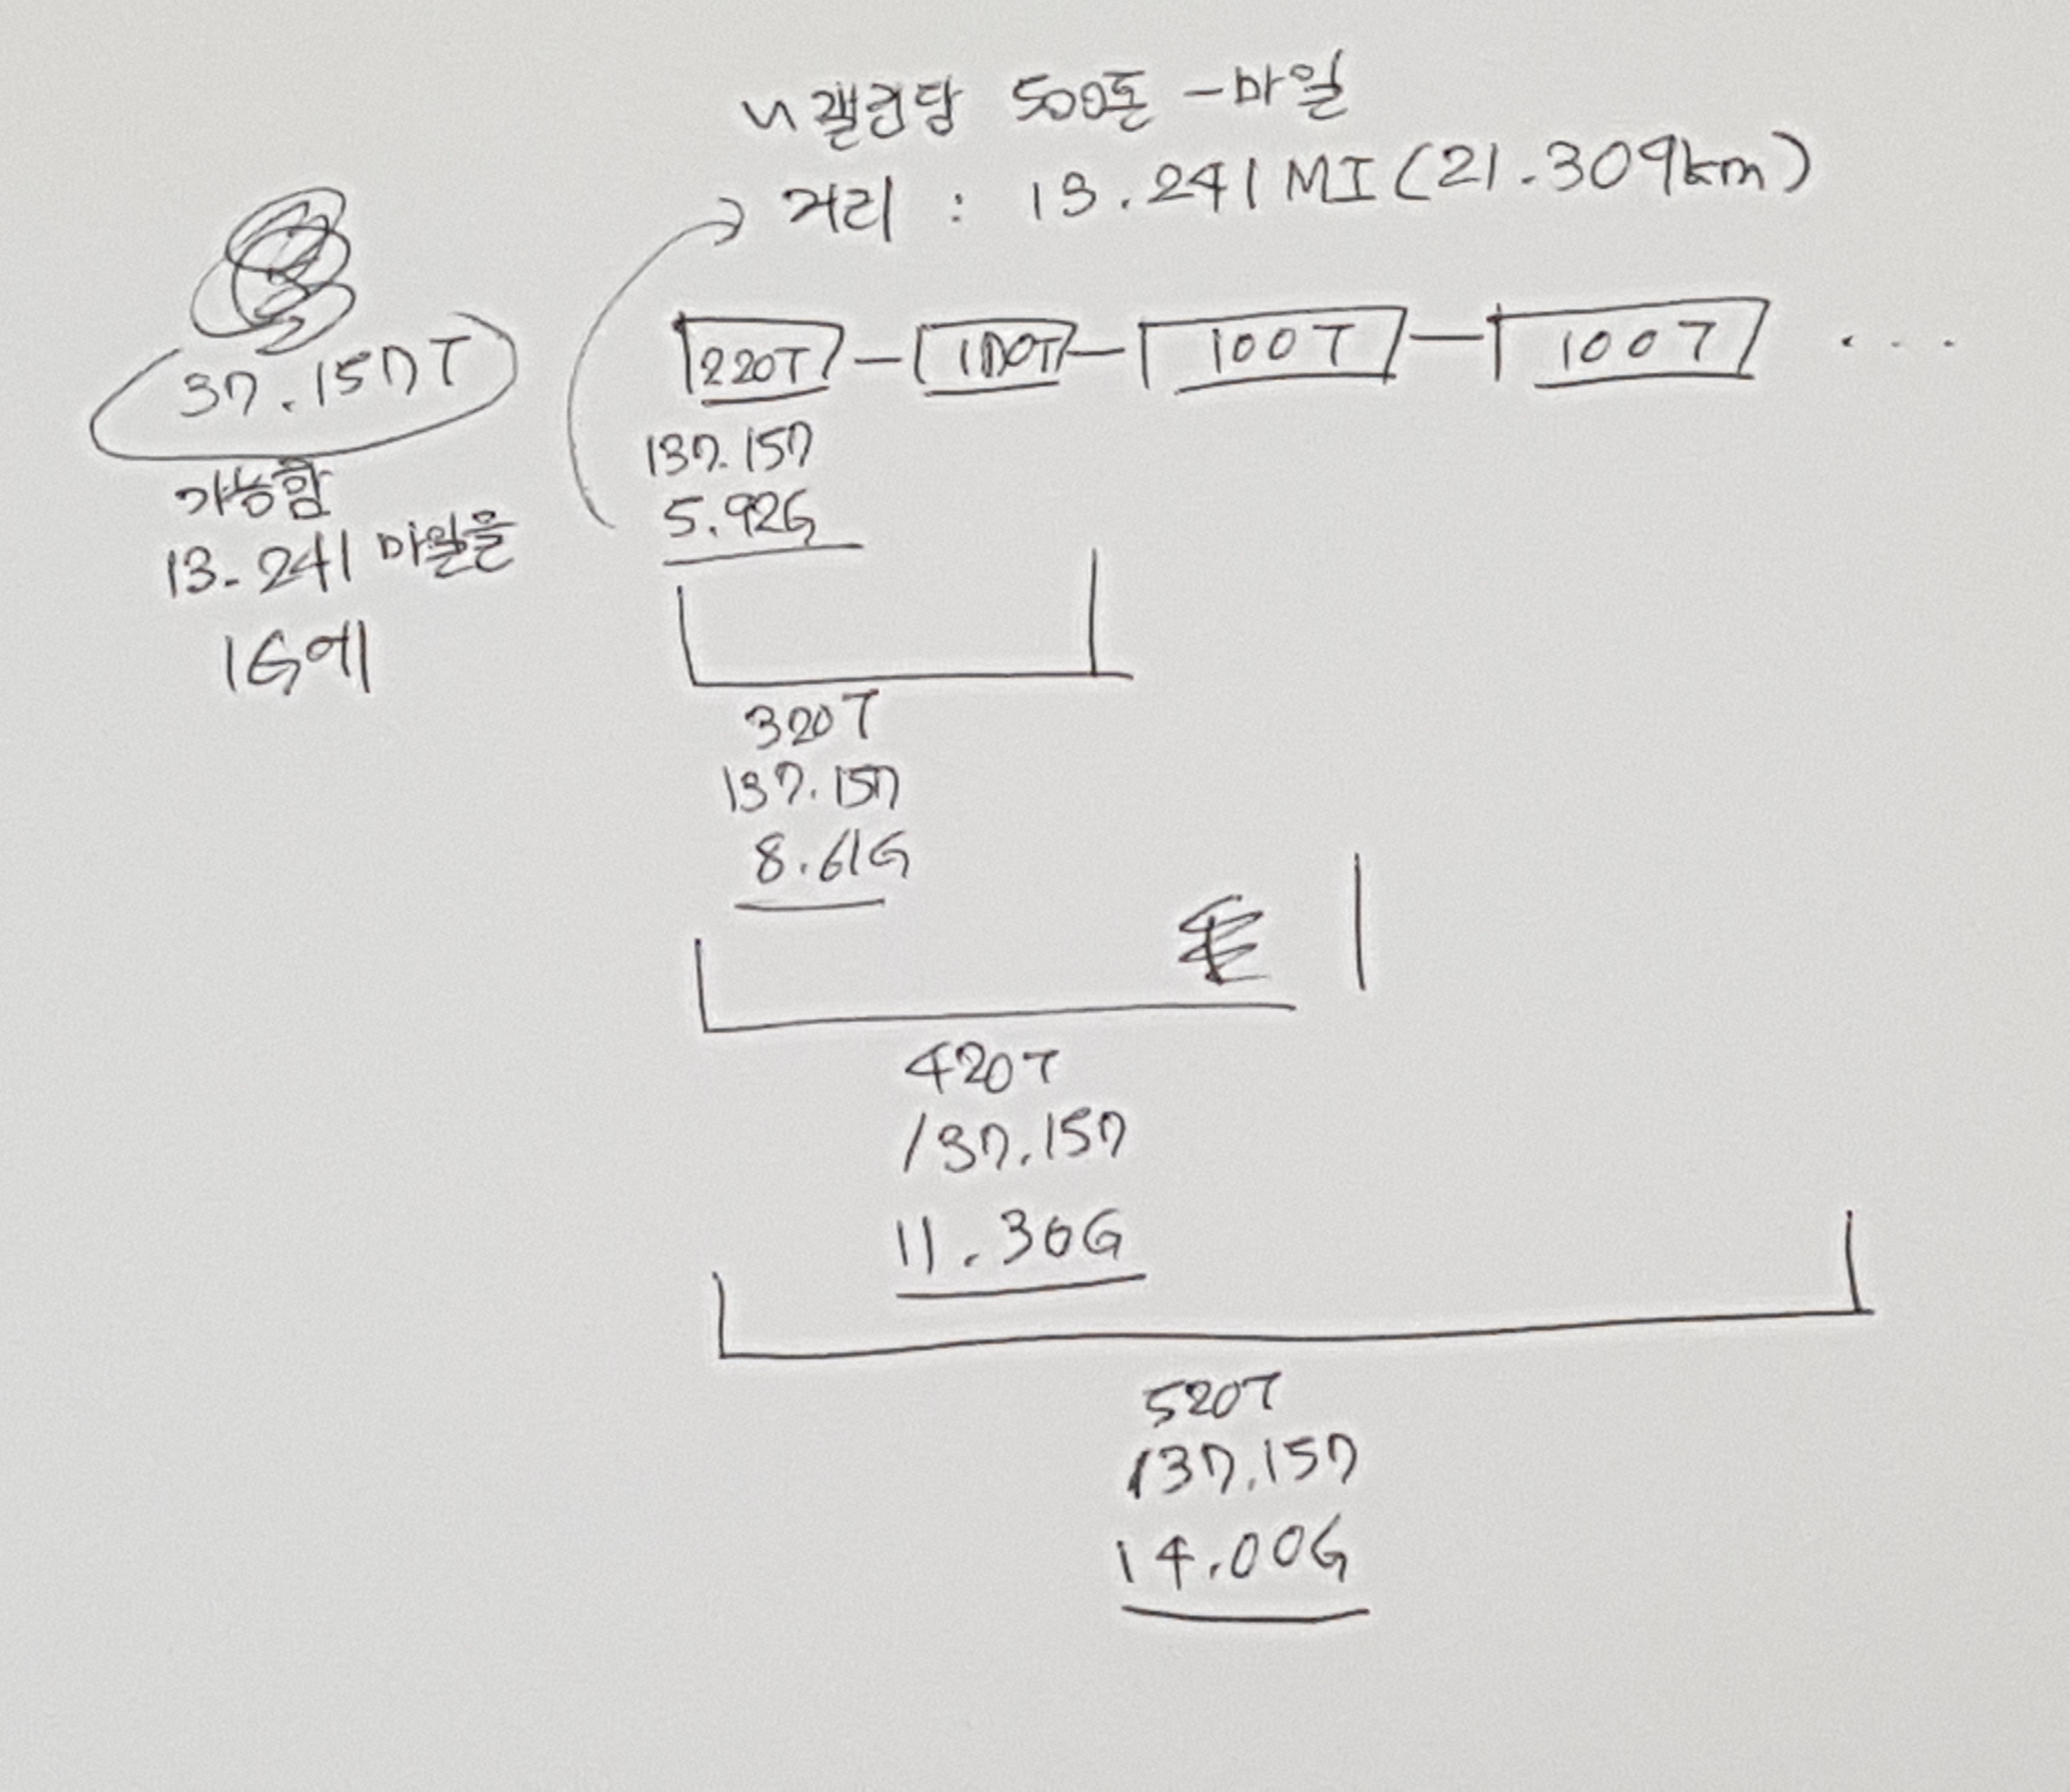 갤런당 500톤-마일
거리 : 13.241 MI (21.309km)
37.157T
가능함
13.241 마일을
1G에
220T - 100T - 100T - 100T ...
137.157
5.92G
320T
137.157
8.61G
420T
/37.157
11.30G
520T
/37.157
14.00G